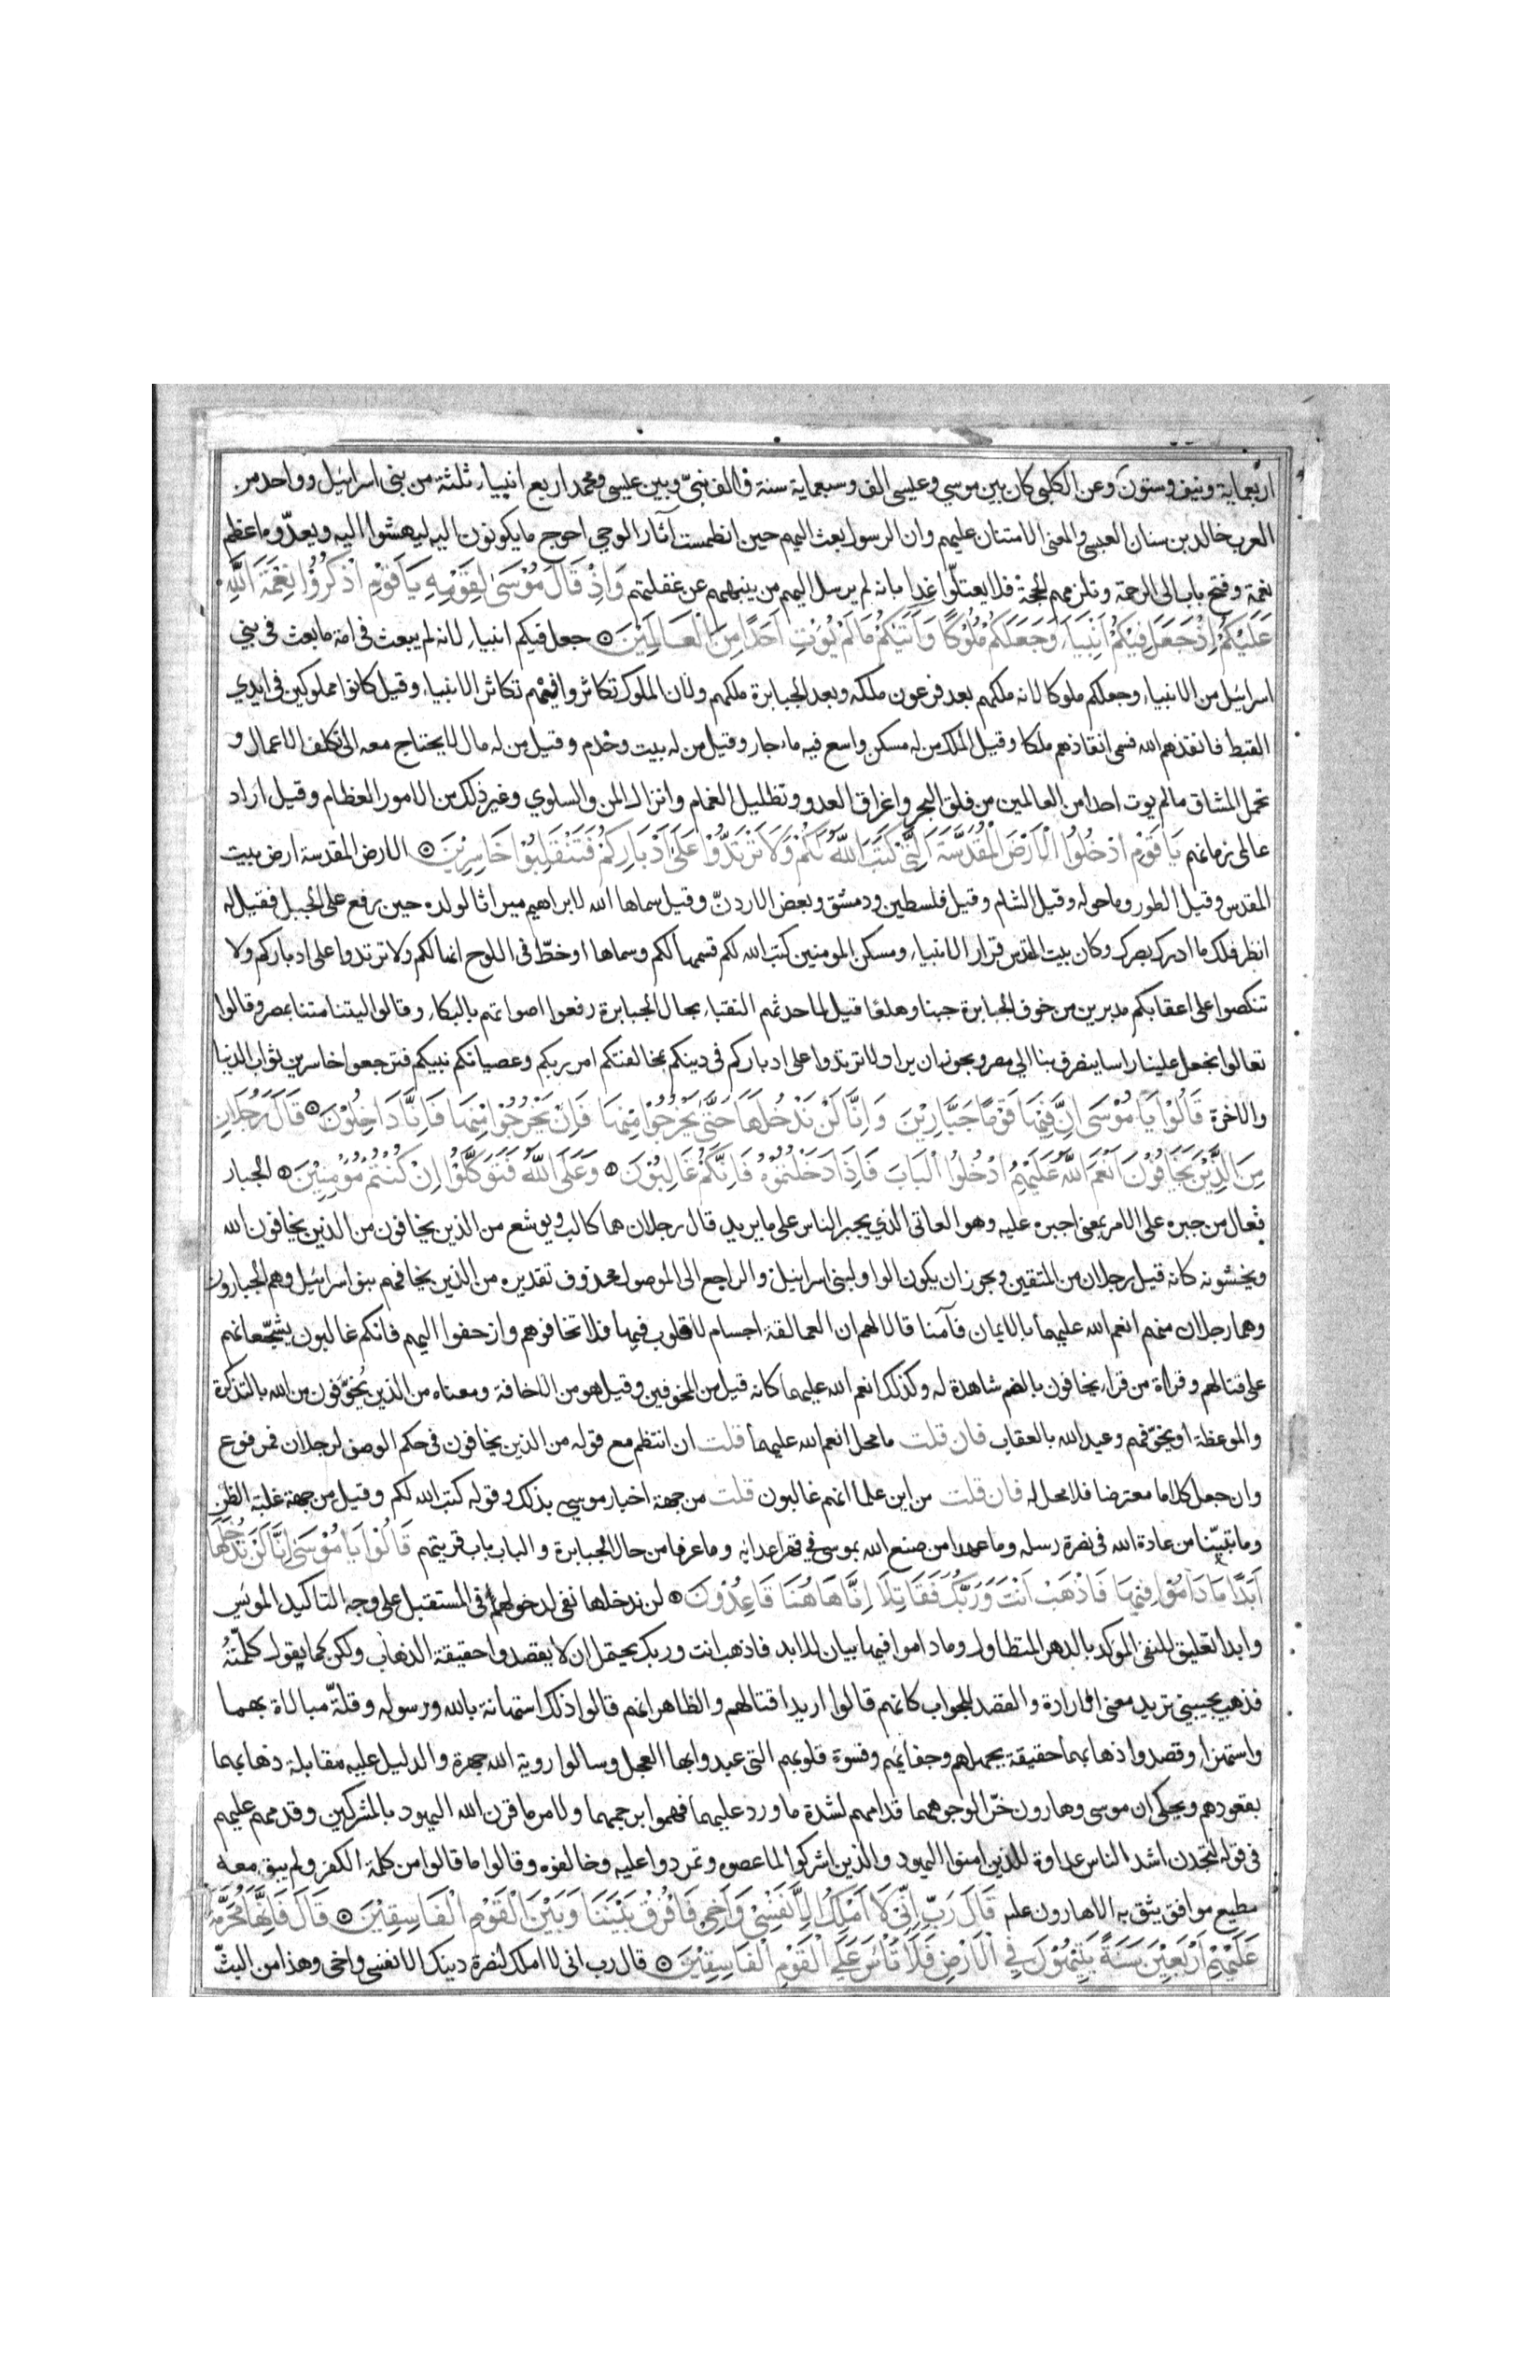 اربعماية ونيف وستون وعن الكلبى كان بين موسي وعيسى الف وسبعماية سنة والف نبيّ وبين عيسى ومحمد اربع انبياء ثلثة من بنى اسرائيل وواحد من
العرب خالد بن سنان العبسى والمعنى الامتنان عليهم وان الرسول بعث اليهم حين انطمست آثار الوحي احوج ما يكونون اليه ليهشوا اليه ويعدّوه اعظم
نعمة وفتح باب الى الرحمة وتلزمهم الحجة فلا يعتلّوا غدا بانه لم يرسل اليهم من ينبههم عن غفلتهم وَاِذْ قَالَ مُوْسَىٰ لِقَوْمِهِ يَا قَوْمِ اذْكُرُوْا نِعْمَةَ اللّٰهِ
عَلَيْكُمْ اِذْ جَعَلَ فِيْكُمْ اَنْبِيَاءَ وَجَعَلَكُمْ مُلُوْكًا وَآتٰىكُمْ مَا لَمْ يُؤْتِ اَحَدًا مِنَ الْعَالَمِيْنَ ۞ جعل فيكم انبياء لانه لم يبعث فى امة ما بعث فى بني
اسرائيل من الانبياء وجعلكم ملوكا لانه ملكهم بعد فرعون ملكه وبعد الجبابرة ملكهم ولان الملوك تكاثروا فيهم تكاثر الانبياء وقيل كانوا مملوكين فى ايدي
القبط فانقذهم الله فسمى انقاذهم ملكا وقيل الملك من له مسكن واسع فيه ماء جار وقيل من له بيت وخدم وقيل من له مال لا يحتاج معه الى تكلف الاعمال و
تحمل المشاق مالم يوت احدا من العالمين من فلق البحر واغراق العدو وتظليل الغمام وانزال المن والسلوي وغير ذلك من الامور العظام وقيل اراد
عالمى زمانهم يَا قَوْمِ ادْخُلُوا الْاَرْضَ الْمُقَدَّسَةَ الَّتِىْ كَتَبَ اللّٰهُ لَكُمْ وَلَا تَرْتَدُّوْا عَلَىٰ اَدْبَارِكُمْ فَتَنْقَلِبُوْا خَاسِرِيْنَ ۞ الارض المقدسة ارض بيت
المقدس وقيل الطور وما حوله وقيل الشام وقيل فلسطين ودمشق وبعض الاردنّ وقيل سماها الله لابراهيم ميراثا لولده حين رفع على الجبل فقيل له
انظر فلك ما ادرك بصرك وكان بيت المقدس قرار الانبياء ومسكن المومنين كتب الله لكم قسمها لكم وسماها او خطّ فى اللوح انها لكم ولا ترتدوا على ادباركم ولا
تنكصوا على اعقابكم مدبرين من خوف الجبابرة جبنا وهلعا قيل لما حدثهم النقباء بحال الجبابرة رفعوا اصواتهم بالبكاء وقالوا ليتنا متنا بمصر وقالوا
تعالوا نجعل علينا راسا ينصرف بنا الي مصر ويجوز ان يراد ولا ترتدوا على ادباركم فى دينكم بمخالفتكم امر ربكم وعصيانكم نبيكم فترجعوا خاسرين ثواب الدنيا
والاخرة قَالُوْا يَا مُوْسَىٰ اِنَّ فِيْهَا قَوْمًا جَبَّارِيْنَ وَاِنَّا لَنْ نَدْخُلَهَا حَتّٰى يَخْرُجُوْا مِنْهَا فَاِنْ يَخْرُجُوْا مِنْهَا فَاِنَّا دَاخِلُوْنَ ۞ قَالَ رَجُلَانِ
مِنَ الَّذِيْنَ يَخَافُوْنَ اَنْعَمَ اللّٰهُ عَلَيْهِمَا ادْخُلُوا عَلَيْهِمُ الْبَابَ فَاِذَا دَخَلْتُمُوْهُ فَاِنَّكُمْ غَالِبُوْنَ ۞ وَعَلَى اللّٰهِ فَتَوَكَّلُوْا اِنْ كُنْتُمْ مُؤْمِنِيْنَ ۞ الجبار
فعال من جبره على الامر بمعنى اجبره عليه وهو العاتى الذي يجبر الناس على ما يريد قال رجلان هما كالب ويوشع من الذين يخافون من الذين يخافون الله
ويخشونه كانه قيل رجلان من المتقين ويجوز ان يكون الواو لبنى اسرائيل والراجع الى الموصول محذوف تقديره من الذين يخافهم بنو اسرائيل وهم الجبارون
وهما رجلان منهم انعم الله عليهما بالايمان فآمنا قالا لهم ان العمالقة اجسام لا قلوب فيها فلا تخافوهم وازحفوا اليهم فانكم غالبون يشجّعانهم
على قتالهم وقراة من قرا يخافون بالضم شاهدة له وكذلك انعم الله عليهما كانه قيل من المخوفين وقيل هو من الاخافة ومعناه من الذين يُخوَّفون من الله بالتذكرة
والموعظة او يخوّفهم وعيد الله بالعقاب فان قلت ما محل انعم الله عليهما قلت ان انتظم مع قوله من الذين يخافون فى حكم الوصف لرجلان فمرفوع
وان جعل كلاما معترضا فلا محل له فان قلت من اين علما انهم غالبون قلت من جهة اخبار موسي بذلك وقوله كتب الله لكم وقيل من جهة غلبة الظن
وما تبيّنا من عادة الله فى نصرة رسله وما عهدا من صنع الله بموسى في قهر اعدائه وما عرفا من حال الجبابرة والباب باب قريتهم قَالُوْا يَا مُوْسَىٰ اِنَّا لَنْ نَدْخُلَهَا
اَبَدًا مَا دَامُوْا فِيْهَا فَاذْهَبْ اَنْتَ وَرَبُّكَ فَقَاتِلَا اِنَّا هَاهُنَا قَاعِدُوْنَ ۞ لن ندخلها نفى لدخولهم فى المستقبل على وجه التاكيد الموئس
وابدا تعليق للنفى الموكد بالدهر المتطاول وما داموا فيها بيان للابد فاذهب انت وربك يحتمل ان لا يقصدوا حقيقة الذهاب ولكن كما يقول كلّمتُهُ
فذهب يجيبني تريد معنى الارادة والقصد للجواب كانهم قالوا اريدا قتالهم والظاهر انهم قالوا ذلك استهانة بالله ورسوله وقلّة مبالاة بهما
واستهزاء وقصدوا ذهابهما حقيقة بجهلهم وجفائهم وقسوة قلوبهم التى عبدوا بها العجل وسالوا روية الله جهرة والدليل عليه مقابلة ذهابهما
بقعودهم ويحكى ان موسى وهارون خرّا لوجوههما قدامهم لشدة ما ورد عليهما فهموا برجمهما ولامر ما قرن الله اليهود بالمشركين وقدمهم عليهم
فى قوله لتجدن اشد الناس عداوة للذين امنوا اليهود والذين اشركوا لما عصوه وتمردوا عليه وخالفوه وقالوا ما قالوا من كلمة الكفر ولم يبق معه
مطيع موافق يثق به الا هارون علم قَالَ رَبِّ اِنِّىْ لَا اَمْلِكُ اِلَّا نَفْسِىْ وَاَخِىْ فَافْرُقْ بَيْنَنَا وَبَيْنَ الْقَوْمِ الْفَاسِقِيْنَ ۞ قَالَ فَاِنَّهَا مُحَرَّمَةٌ
عَلَيْهِمْ اَرْبَعِيْنَ سَنَةً يَتِيْهُوْنَ فِي الْاَرْضِ فَلَا تَأْسَ عَلَى الْقَوْمِ الْفَاسِقِيْنَ ۞ قال رب انى لا املك لنصرة دينك الا نفسى واخى وهذا من البثّ